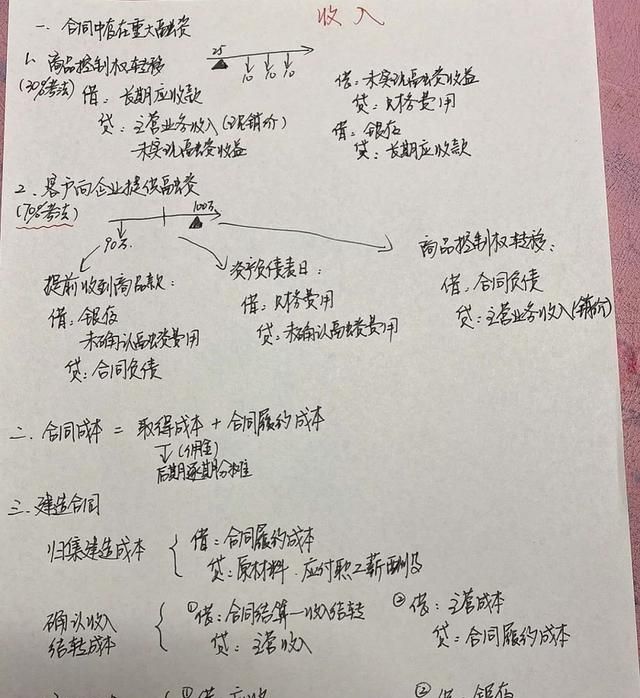 收入
一、合同中存在重大融资
1、商品控制权转移
(30%考法)
25
10 10 10
借：长期应收款
贷：主营业务收入(现销价)
未实现融资收益
借：未实现融资收益
贷：财务费用
借：银存
贷：长期应收款
2、客户向企业提供融资
(70%考法)
90万
100万
提前收到商品款：
借：银存
未确认融资费用
贷：合同负债
资产负债表日：
借：财务费用
贷：未确认融资费用
商品控制权转移：
借：合同负债
贷：主营业务收入(销价)
二、合同成本 = 取得成本 + 合同履约成本
(佣金)
后期逐期分摊
三、建造合同
归集建造成本
借：合同履约成本
贷：原材料、应付职工薪酬等
确认收入
结转成本
①借：合同结算—收入结转
贷：主营收入
②借：主营成本
贷：合同履约成本
①借：应收
②借：银存